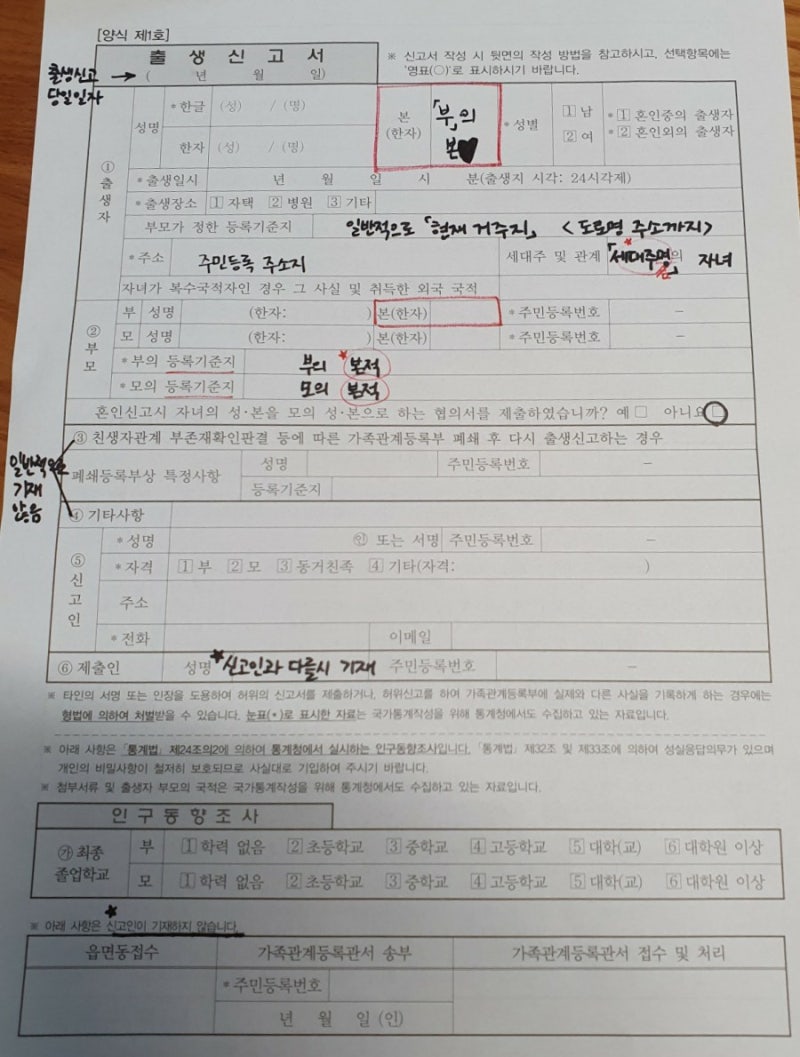 [양식 제1호]
출 생 신 고 서
( 년 월 일)
※ 신고서 작성 시 뒷면의 작성 방법을 참고하시고, 선택항목에는
'영표(○)'로 표시하시기 바랍니다.
출생신고 →
당일일자
① 출생자
성명 *한글 (성) / (명)
한자 (성) / (명)
본
(한자)
「부」의
본
*성별 1 남
2 여
*1 혼인중의 출생자
*2 혼인외의 출생자
*출생일시 년 월 일 시 분(출생지 시각: 24시각제)
*출생장소 1 자택 2 병원 3 기타
부모가 정한 등록기준지 일반적으로 「현재 거주지」 <도로명 주소까지>
*주소 주민등록 주소지 세대주 및 관계 「세대주명」의 자녀
자녀가 복수국적자인 경우 그 사실 및 취득한 외국 국적
② 부모
부 성명 (한자: ) 본(한자) *주민등록번호 -
모 성명 (한자: ) 본(한자) *주민등록번호 -
*부의 등록기준지 부의 *본적
*모의 등록기준지 모의 본적
혼인신고시 자녀의 성·본을 모의 성·본으로 하는 협의서를 제출하였습니까? 예□ 아니요□
③ 친생자관계 부존재확인판결 등에 따른 가족관계등록부 폐쇄 후 다시 출생신고하는 경우
일반적으로
기재
않음
폐쇄등록부상 특정사항 성명 주민등록번호 -
등록기준지
④ 기타사항
⑤ 신고인
*성명 ㊞ 또는 서명 주민등록번호 -
*자격 1 부 2 모 3 동거친족 4 기타(자격: )
주소
*전화 이메일
⑥ 제출인 성명 ★신고인과 다를시 기재 주민등록번호 -
※ 타인의 서명 또는 인장을 도용하여 허위의 신고서를 제출하거나, 허위신고를 하여 가족관계등록부에 실제와 다른 사실을 기록하게 하는 경우에는
형법에 의하여 처벌받을 수 있습니다. 눈표(*)로 표시한 자료는 국가통계작성을 위해 통계청에서도 수집하고 있는 자료입니다.
※ 아래 사항은 「통계법」 제24조의2에 의하여 통계청에서 실시하는 인구동향조사입니다. 「통계법」 제32조 및 제33조에 의하여 성실응답의무가 있으며
개인의 비밀사항이 철저히 보호되므로 사실대로 기입하여 주시기 바랍니다.
※ 첨부서류 및 출생자 부모의 국적은 국가통계작성을 위해 통계청에서도 수집하고 있는 자료입니다.
인 구 동 향 조 사
㉮ 최종
졸업학교
부 1 학력 없음 2 초등학교 3 중학교 4 고등학교 5 대학(교) 6 대학원 이상
모 1 학력 없음 2 초등학교 3 중학교 4 고등학교 5 대학(교) 6 대학원 이상
※ 아래 사항은 ★신고인이 기재하지 않습니다.
읍면동접수 가족관계등록관서 송부 가족관계등록관서 접수 및 처리
*주민등록번호
년 월 일 (인)